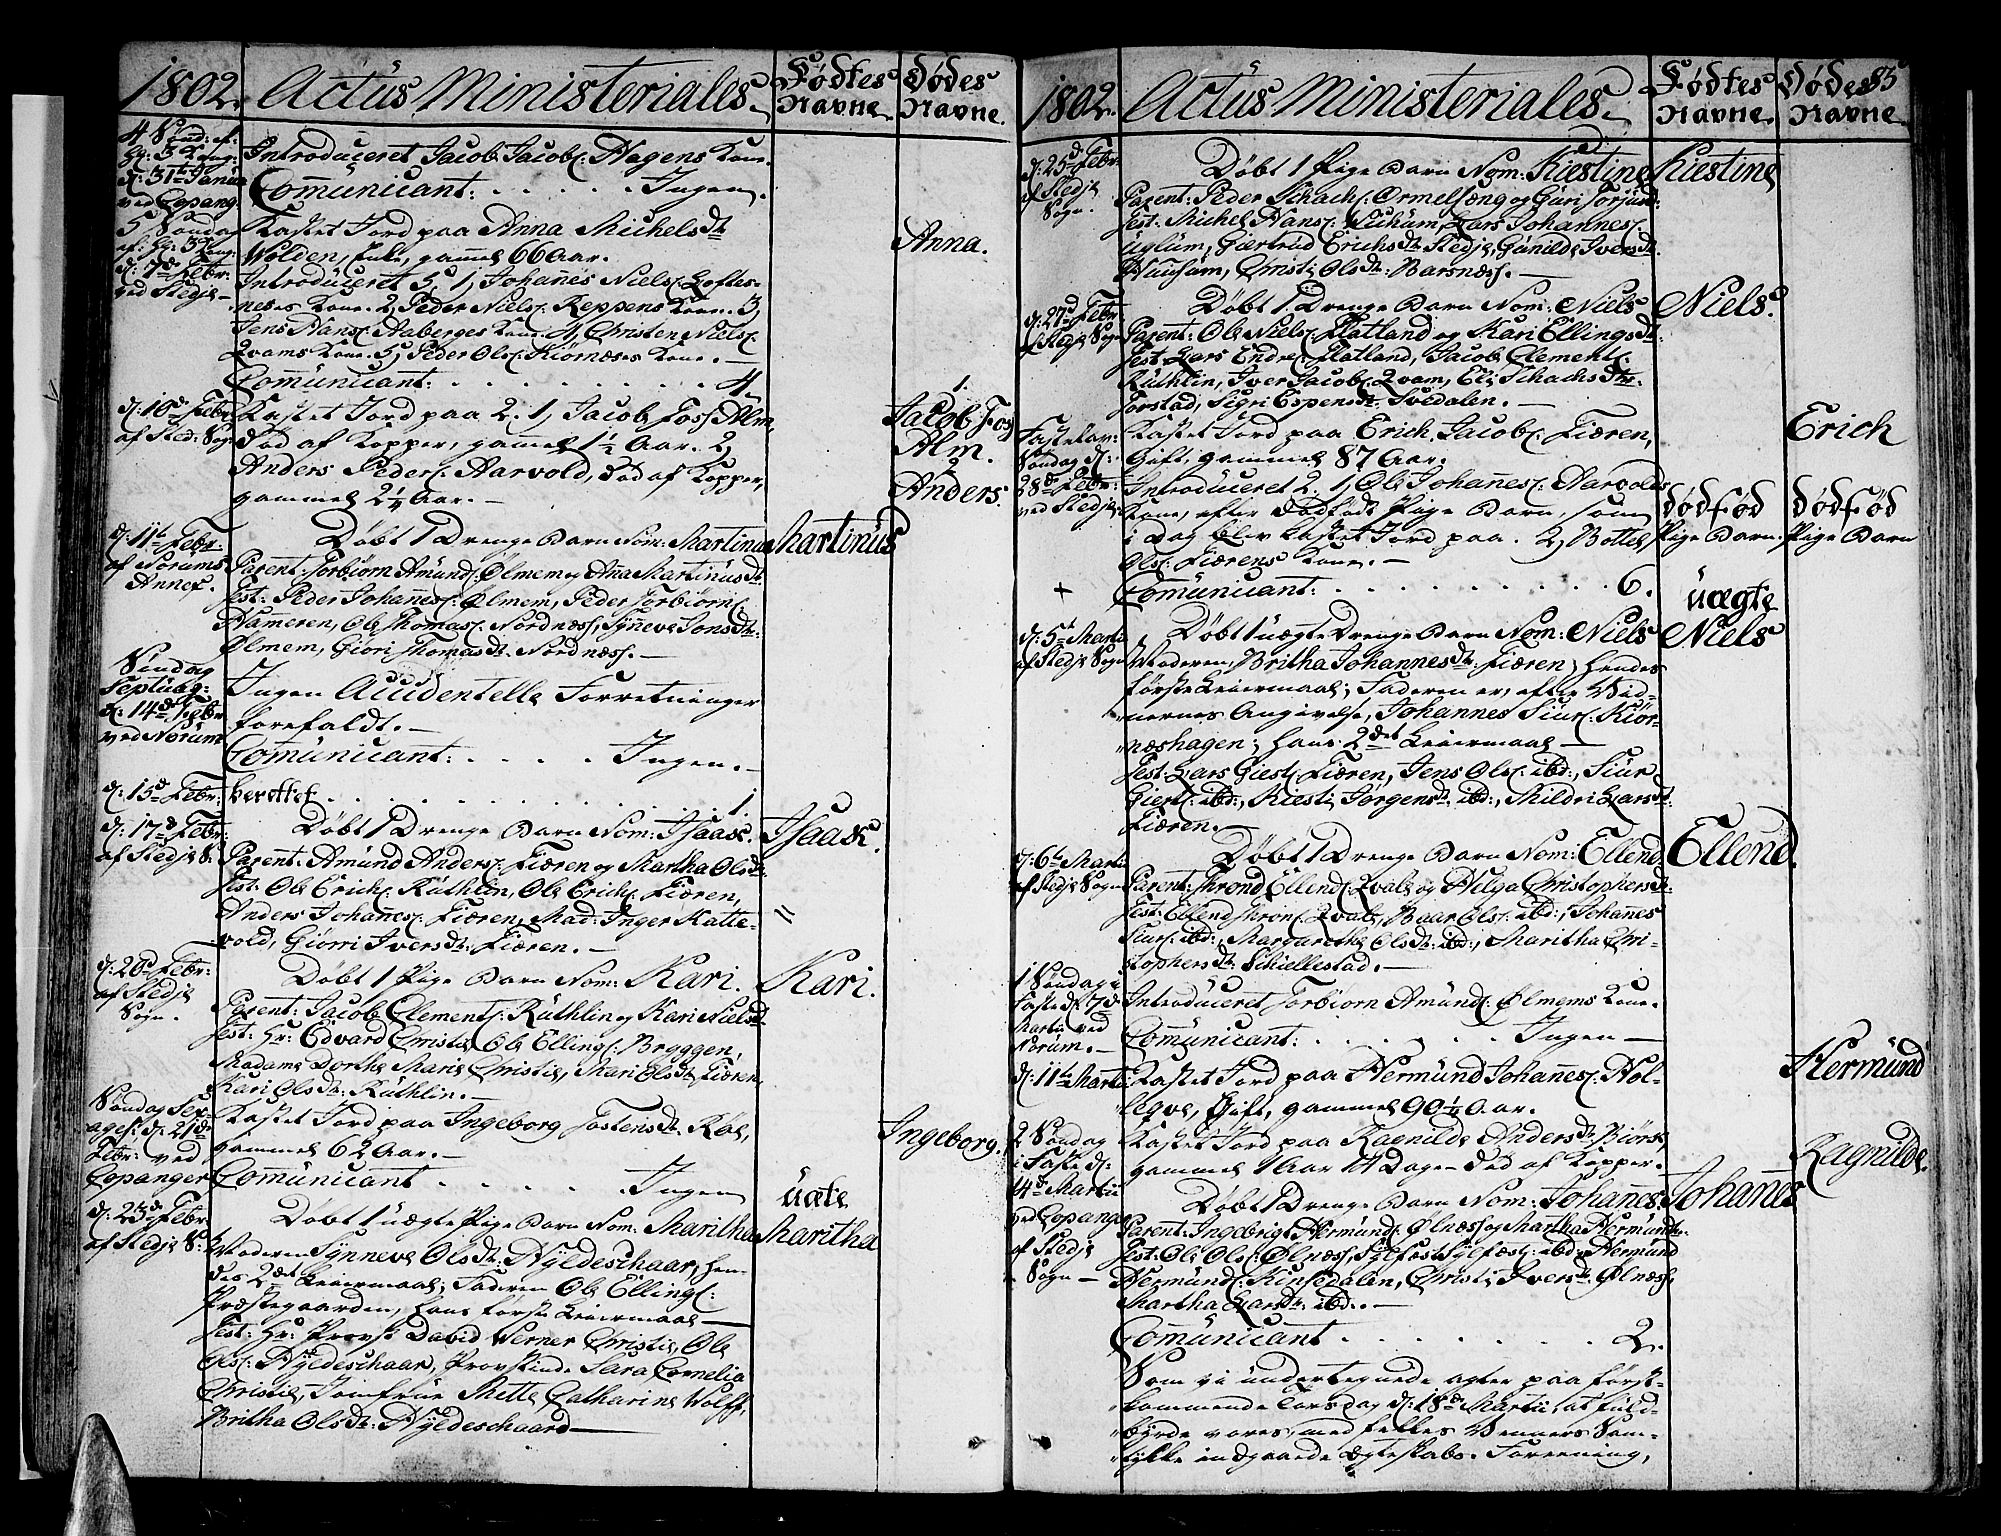 1802. Actus Ministeriales. Fødtes Navne. Dødes Navne.
4 Sønd: ef:
Hg: 3 Kong:
d: 31te Janua
ved Copang
Introduceret Jacob Jacobs: Hagens Kone.
Com̄unicant: . . . . . Ingen.
5 Søndag
ef: Hg: 3 Kong:
d: 7de Febr:
ved Stedje
Kastet Jord paa Anna Michelsdtr
Anna.
Wolden, Enke, gam̄el 66 Aar.
Introduceret 5, 1, Johan̄es Niels: Loftes-
neses Kone. 2, Peder Niels: Reppens Kone. 3,
Jens Hans: Aaberges Kone. 4, Christen Niels:
Qvams Kone. 5, Peder Ols: Kiørneses Kone.
Com̄unicant: . . . . . . . . 4.
d: 10de Febr
af Sted: Sogn
Kastet Jord paa 2. 1, Jacob Foss Alm,
1.
Jacob Fos
Alm.
død af Kopper, gamel 1½ Aar. 2,
Anders Peders: Aarvold, død af Kopper,
2
Anders.
gammel 2¼ Aar.
d: 11te Febr:
af Norums
Annex.
Døbt 1 Drenge Barn Nom: Martinus
Martinus
Parent: Torbiørn Amund: Ølmem og An̄a Martinusdtr:
Test: Peder Johan̄es: Ølmem, Peder Torbiørn:
Hameren, Ole Thomas: Nordnæss, Syn̄eve Jonsdtr:
Ølmem, Giøri Thomasdtr: Nordnæss.
Søndag
Septuag:
d: 14de Febr
ved Norum
Ingen Accidentelle Forretninger
forefaldt.
Com̄unicant: . . . . Ingen.
d: 15de Febr:
berettet . . . . . . . . 1.
d: 17de Febr:
af Stedje S:
Døbt 1 Drenge Barn Nom: Isaac.
Isaac.
Parent: Amund Anders: Fiæren og Martha Olsdtr:
Test: Ole Erich: Ruthlin, Ole Erich: Fiæren,
Anders Johan̄es: Fiæren, Mad: Inger Katte-
vold, Giørri Iversdtr: Fiæren.
d: 20de Febr:
af Stedje
Sogn.
Døbt 1 Pige Barn Nom: Kari.
Kari.
Parent: Jacob Clements: Ruthlin og Kari Nielsdtr
Test: Hr: Edvard Christie, Ole Elling: Bryggen,
Madame Dorthe Marie Christie, Mari Olsdtr: Fiæren,
Kari Olsdtr: Ruthlin.
Søndag Sex-
ages: d: 21de
Febr: ved
Copanger
Kastet Jord paa Ingeborg Tostensdtr: Røl,
Ingeborg.
gammel 62 Aar.
Com̄unicant . . . . . . Ingen
d: 23de Febr
af Stedje S:
uægte
Døbt 1 uægte Pige Barn Nom: Maritha
Maritha
Moderen Syn̄eve Olsdtr: Nyldeschaar, hen-
des 2det Leiermaal; Faderen Ole Elling:
Præstegaarden, hans første Leiermaal
Test: Hr: Provst David Werner Christie, Ole
Ols: Nyldeschaar, Provstinde Sara Cornelia
Christie, Jomfrue Mette Catharine Wolff,
Britha Olsdtr: Nyldeschaard
1802. Actus Ministeriales. Fødtes Navne. Dødes Navne. 85
d: 25de Febr:
af Stedje
Sogn.
Døbt 1 Pige Barn Nom: Kiestine
Kiestine
Parent: Peder Schach: Ormelseng og Guri Torjus:
Test: Michel Hans: Huuhum, Lars Johannes:
Uglum, Giertrud Erichsdtr: Stedje, Gunilde Iversdtr:
Huuhum, Christi Olsdtr: Barsnæss.
d: 27de Febr:
af Stedje Sogn
Døbt 1 Drenge Barn Nom: Niels
Niels.
Parent: Ole Niels: Flatland og Kari Ellingsdtr:
Test: Lars Endre: Flatland, Jacob Clement:
Ruthlin, Iver Jacob: Qvam, Eli Schachsdtr:
Torstad, Sigri Espensdtr: Svedalen.
Fastelav-
Søndag d:
28de Febr:
ved Stedje
Kastet Jord paa Erich Jacob: Fiæren,
Erich
Gift, gammel 87 Aar.
Introduceret 2. 1, Ole Johan̄es: Aarvolds
Kone, efter dødfødt Pige Barn, som
dødfød
Pige Barn.
dødfød
Pige Barn
i Dag blev kastet Jord paa. 2, Botte
Ols: Fiærens Kone.
Com̄unicant: . . . . . . . . 6.
d: 5te Martii
af Stedje Sogn
uægte
Døbt 1 uægte Drenge Barn Nom: Niels
Niels
Moderen, Britha Johannesdtr: Fiæren, hendes
første Leiermaal; Faderen er, efter Mod-
nernes Angivelse, Johannes Siur: Kiør-
neshagen; hans 2det Leiermaal
Test: Lars Giest: Fiæren, Jens Ols: ibd:, Siur
Giert: ibd:, Kiesti Jørgensdtr: ibd:, Mildri Larsdtr:
Fiæren.
d: 6te Martii
af Stedje Sogn
Døbt 1 Drenge Barn Nom: Ellend
Ellend.
Parent: Thrond Ellend: Qvale og Helga Christophersdtr:
Test: Ellend Thron: Qvale, Baar Ols: ibd:, Johan̄es
Siur: ibd:, Margarethe Olsdtr: ibd:, Maritha Chri-
stophersdtr: Schiellestad.
1 Søndag i
Faste d: 7de
Martii ved
Norum.
Introduceret Torbiørn Amund: Ølmems Kone.
Com̄unicant: . . . . . . Ingen
d: 11te Martii
Kastet Jord paa Hermund Johan̄es: Hol-
Hermund
legve, Gift, gammel 90¼ Aar.
2 Søndag
i Faste d:
14de Martii
ved Copanger
af Stedje
Sogn
Kastet Jord paa Ragnilde Andersdtr: Biørk,
Ragnilde.
gammel 1 Aar 14 Dage død af Kopper.
Døbt 1 Drenge Barn Nom: Johan̄es.
Johan̄es
Parent: Ingebrigt Hermund: Ølnæs og Martha Hermunds:
Test: Ole Ols: Ølnæss, Sylfæst Sylfæst: ibd:, Hermund
Hermund: Kinsedalen, Christi Iversdtr: Ølnæss,
Martha Larsdtr: ibd:.
Com̄unicant . . . . . . . . 2.
Som vi undertegnede agter paa først-
kommende Torsdag d: 18de Martii at fuld-
byrde vores, med felles Venners Sam-
tykke indgaaede Ægteskabs-Foreening,